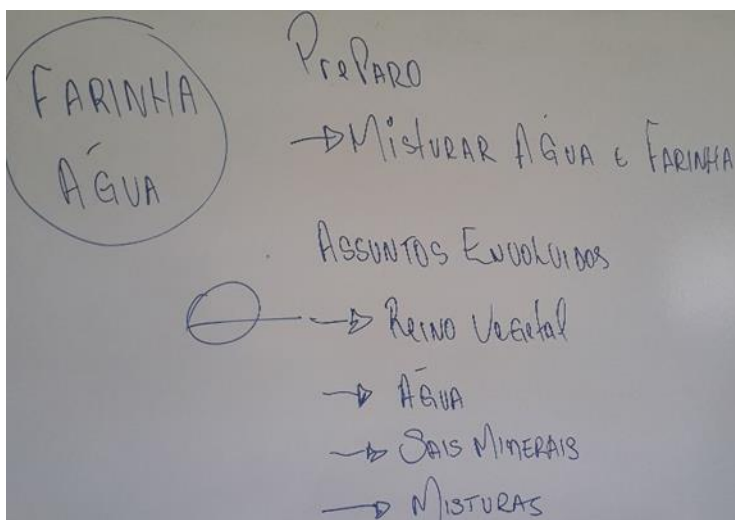 FARINHA
ÁGUA
PrePARO
→ MistURAR ÁGUA E FARINHA
ASSUNTOS ENVOLVIDOS
→ REINO VEGEtal
→ ÁGUA
→ SAIS MINERAIS
→ MISTURAS